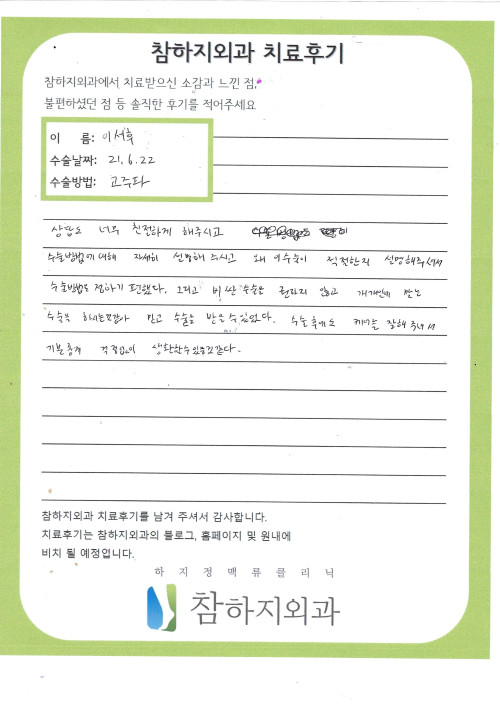 참하지외과 치료후기
참하지외과에서 치료받으신 소감과 느낀 점,
불편하셨던 점 등 솔직한 후기를 적어주세요
이 름: 이서후
수술날짜: 21. 6. 22
수술방법: 고주파
상담도 너무 친절하게 해주시고
수술방법에 대해 자세히 설명해 주시고 왜 이수술이 적절한지 설명해주셔서
수술방법도 정하기 편했다. 그리고 비싼 수술을 권하지 않고 개개인에 맞는
수술을 하시는것같아 믿고 수술을 받을 수 있었다. 수술후에도 케어를 잘해주셔서
기분좋게 걱정없이 생활할수있을것같다.
참하지외과 치료후기를 남겨 주셔서 감사합니다.
치료후기는 참하지외과의 블로그, 홈페이지 및 원내에
비치 될 예정입니다.
하지정맥류클리닉
참하지외과